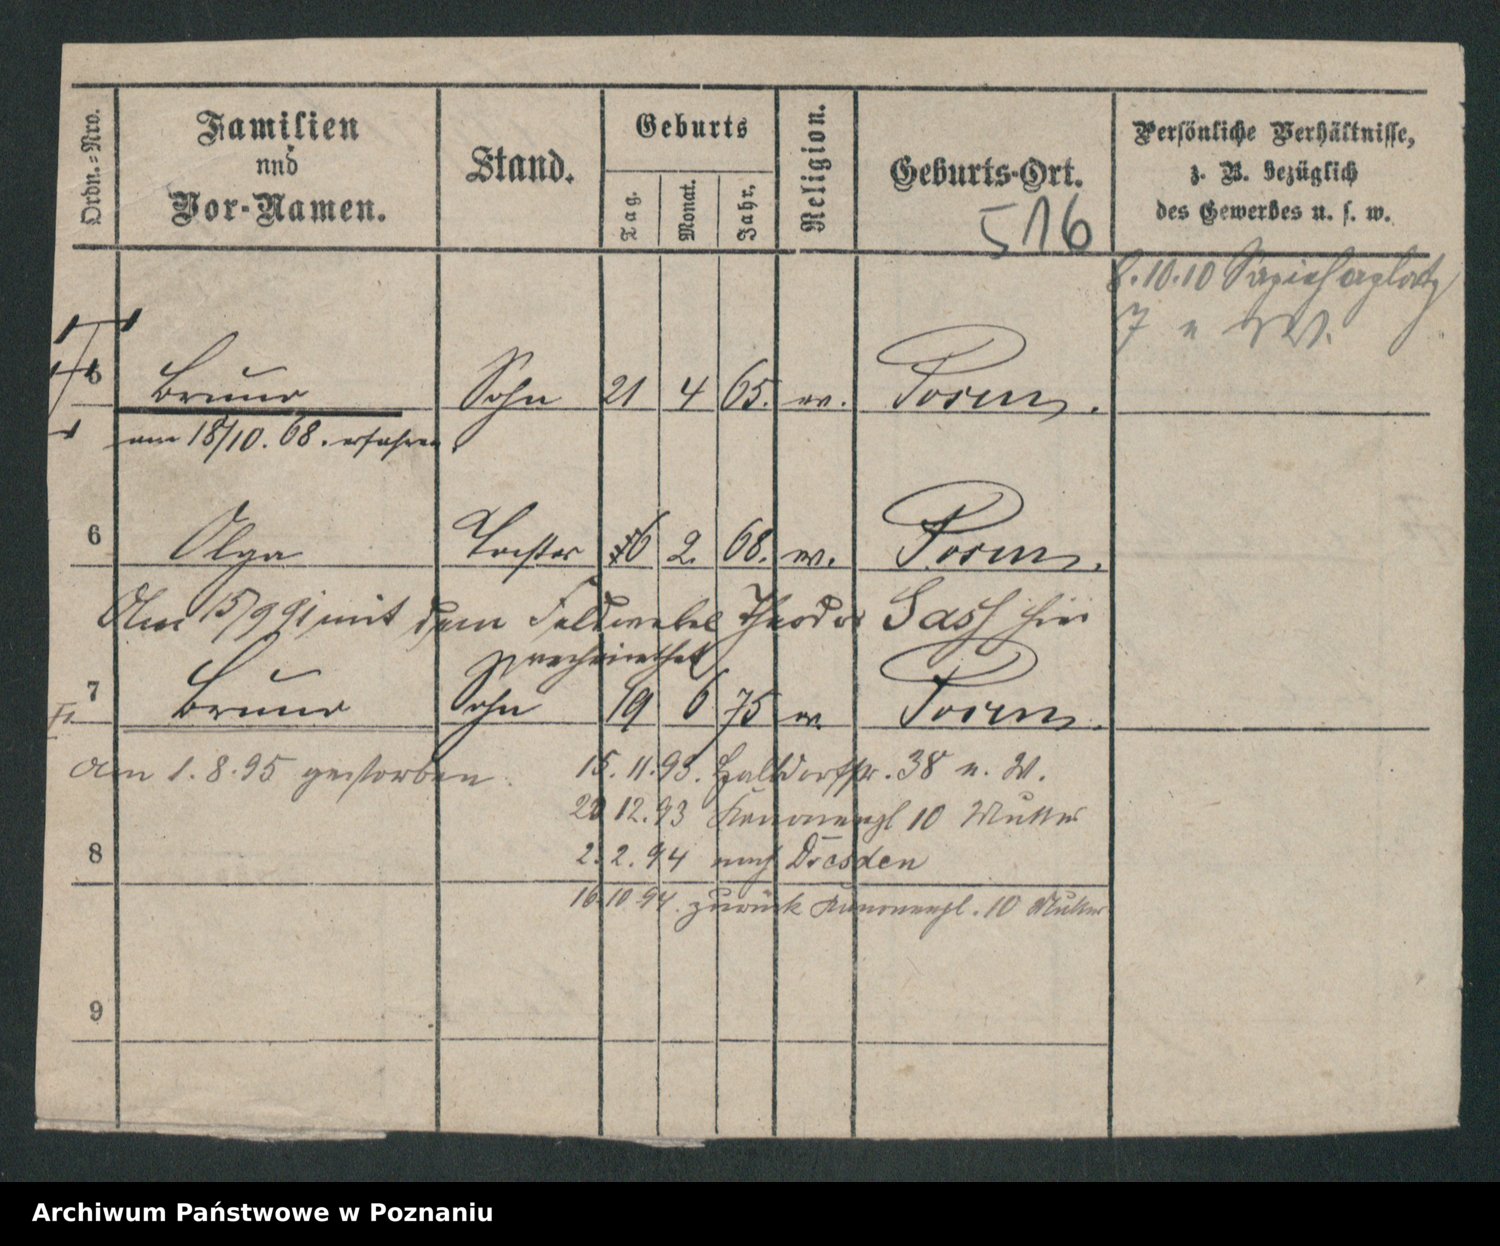 Ordn.=Nro.
Familien
und
Vor-Namen.
Stand.
Geburts
Tag.
Monat.
Jahr.
Religion.
Geburts-Ort.
Persönliche Verhältnisse,
z. B. bezüglich
des Gewerbes u. s. w.
516
8.10.10 Sapiehaplatz
7 u W.
5 Bruno Sohn 21 4 65. ev. Posen.
am 18/10. 68.
6 Olga Tochter 16 2. 68. ev. Posen.
Am 15/9 91 mit dem Feldwebel Theodor Sash hier
verheirathet
7 Bruno Sohn 19 6 75 ev. Posen.
am 1.8.95 gestorben.
15.11.93. Halbdorfstr. 38 u. W.
12.93 Kanonenpl 10 Mutter
8
2.2.94 nach Dresden
16.10.94. zurück Kanonenpl. 10 Mutter
9
Archiwum Państwowe w Poznaniu